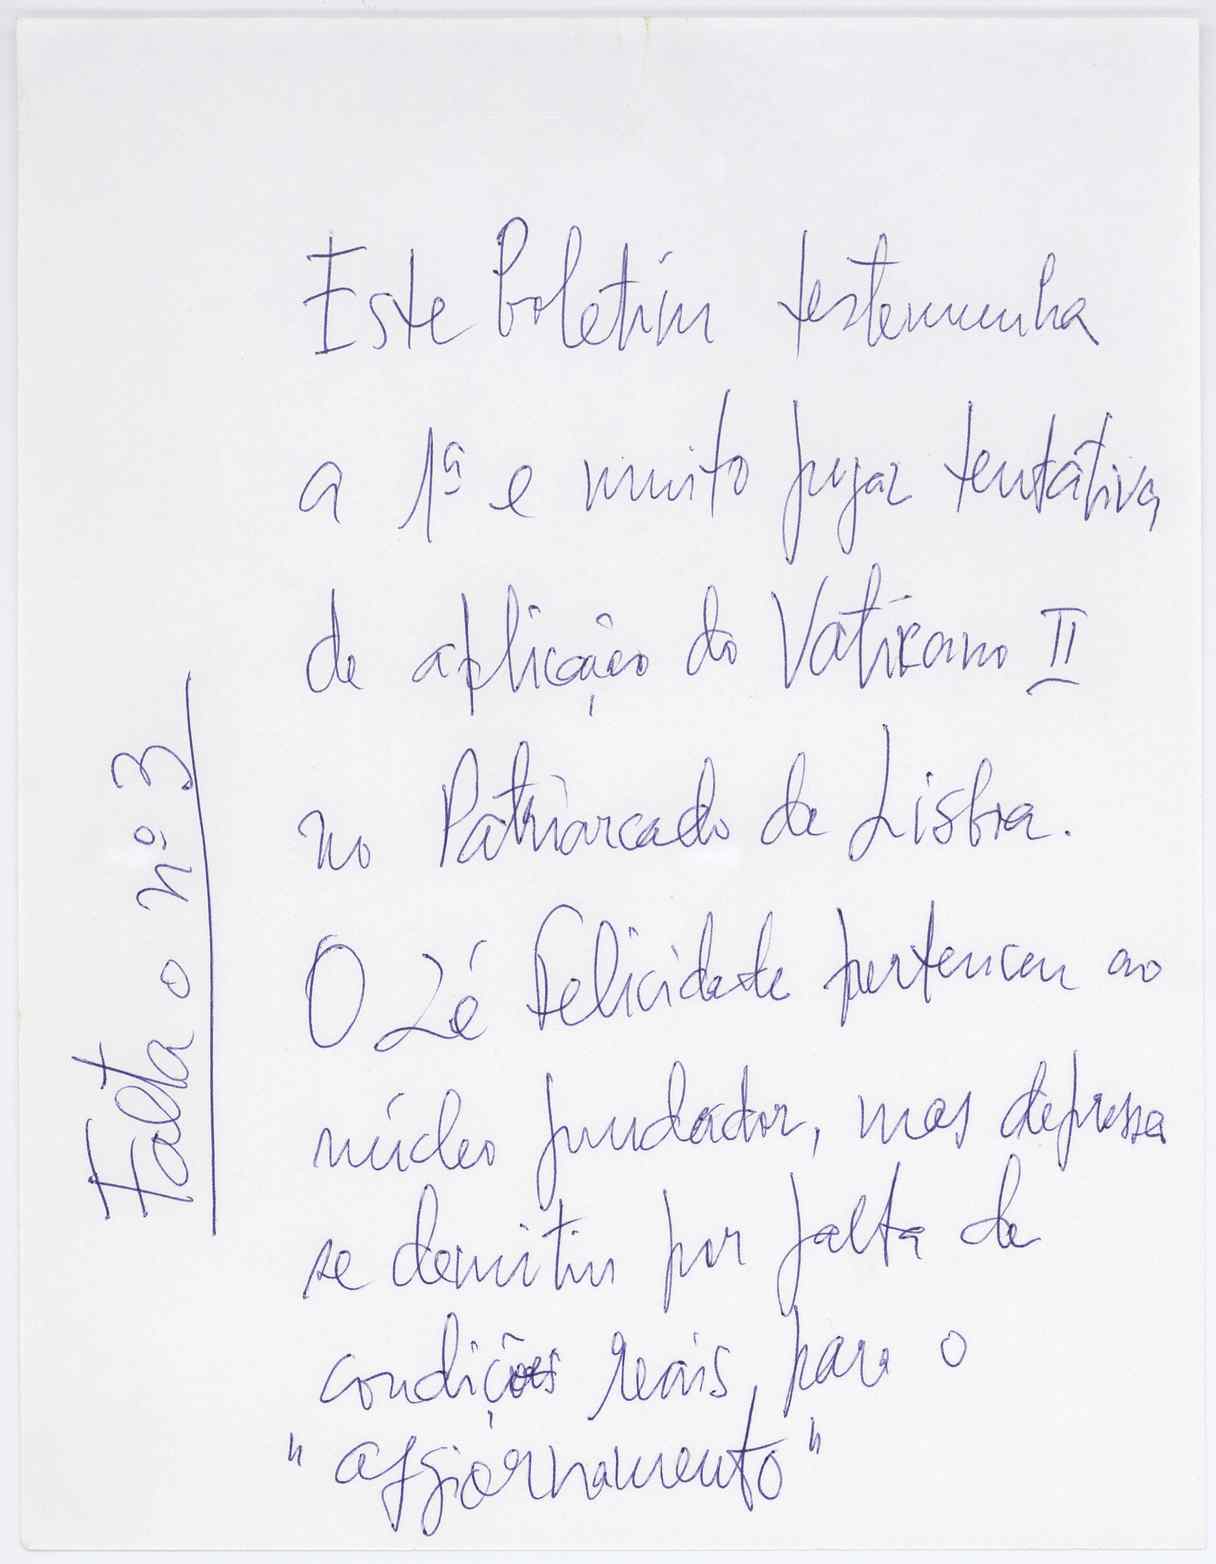 Este Boletim testemunha
a 1ª e muito fugaz tentativa
de aplicação do Vaticano II
no Patriarcado de Lisboa.
O Zé Felicidade pertenceu ao
núcleo fundador, mas depressa
se demitiu por falta de
condições reais, para o
"aggiornamento"
Falta o nº 3